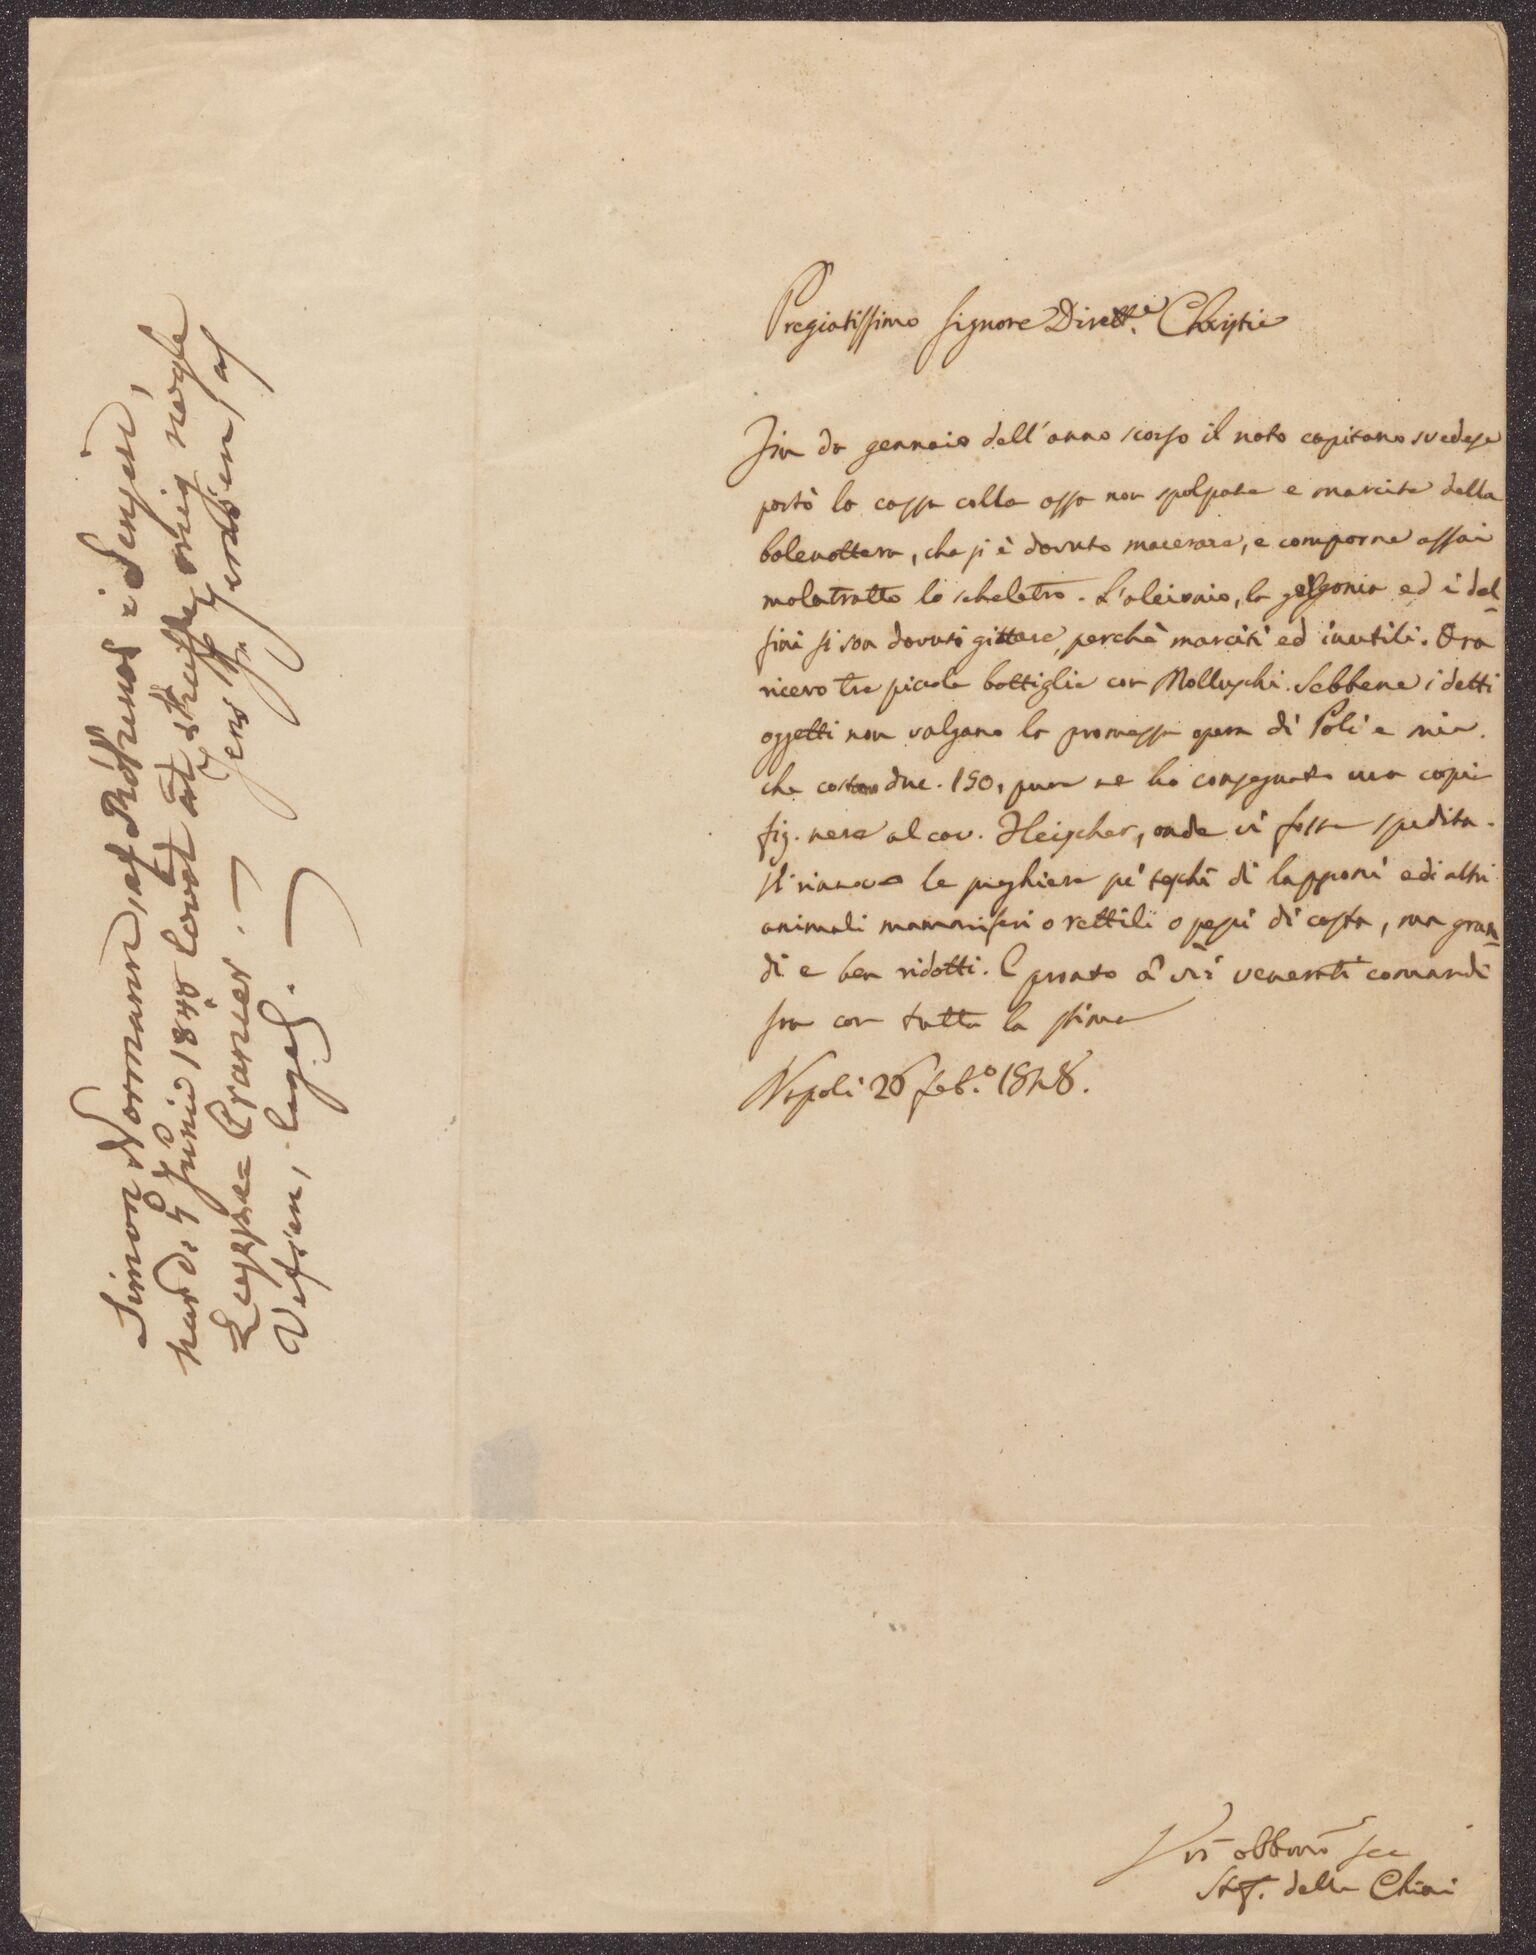 Pregiatissimo Signore Dirett.e Christie
Fin da gennaio dell'anno scorso il noto capitano svedese
portò la cassa colle ossa non spolpate e marcite della
balenottera, che si è dovuto macerare, e comporne assai
malatratto lo scheletro. L'alcionio, la gorgonia ed i del-
fini si son dovuti gittare, perchè marciti ed inutili. Ora
ricevo tre picole bottiglie con Molluschi. Sebbene i detti
oggetti non valgano la promessa opera di Poli e mia.
che costano duc. 150, pure ne ho consegnato una copia
fig. nere al cav. Heigcher, onde vi fosse spedita.
le preghiere pe' teschi di lapponi ed altri
animali mammiferi o rettili o pesci di costà, ma gran-
di e ben ridotti. E pronto a' vri venerati comandi
son con tutta la stima
Napoli 26 feb.o 1848.
Vr obbmo
Stef. delle Chiai
Simon Normann, af i Senjen,
har d. 5 Junii 1848 lovet at skaffe mig nogle
Lappe-Cranier. — Jens Jensen, af
Vefsen, ligel. —